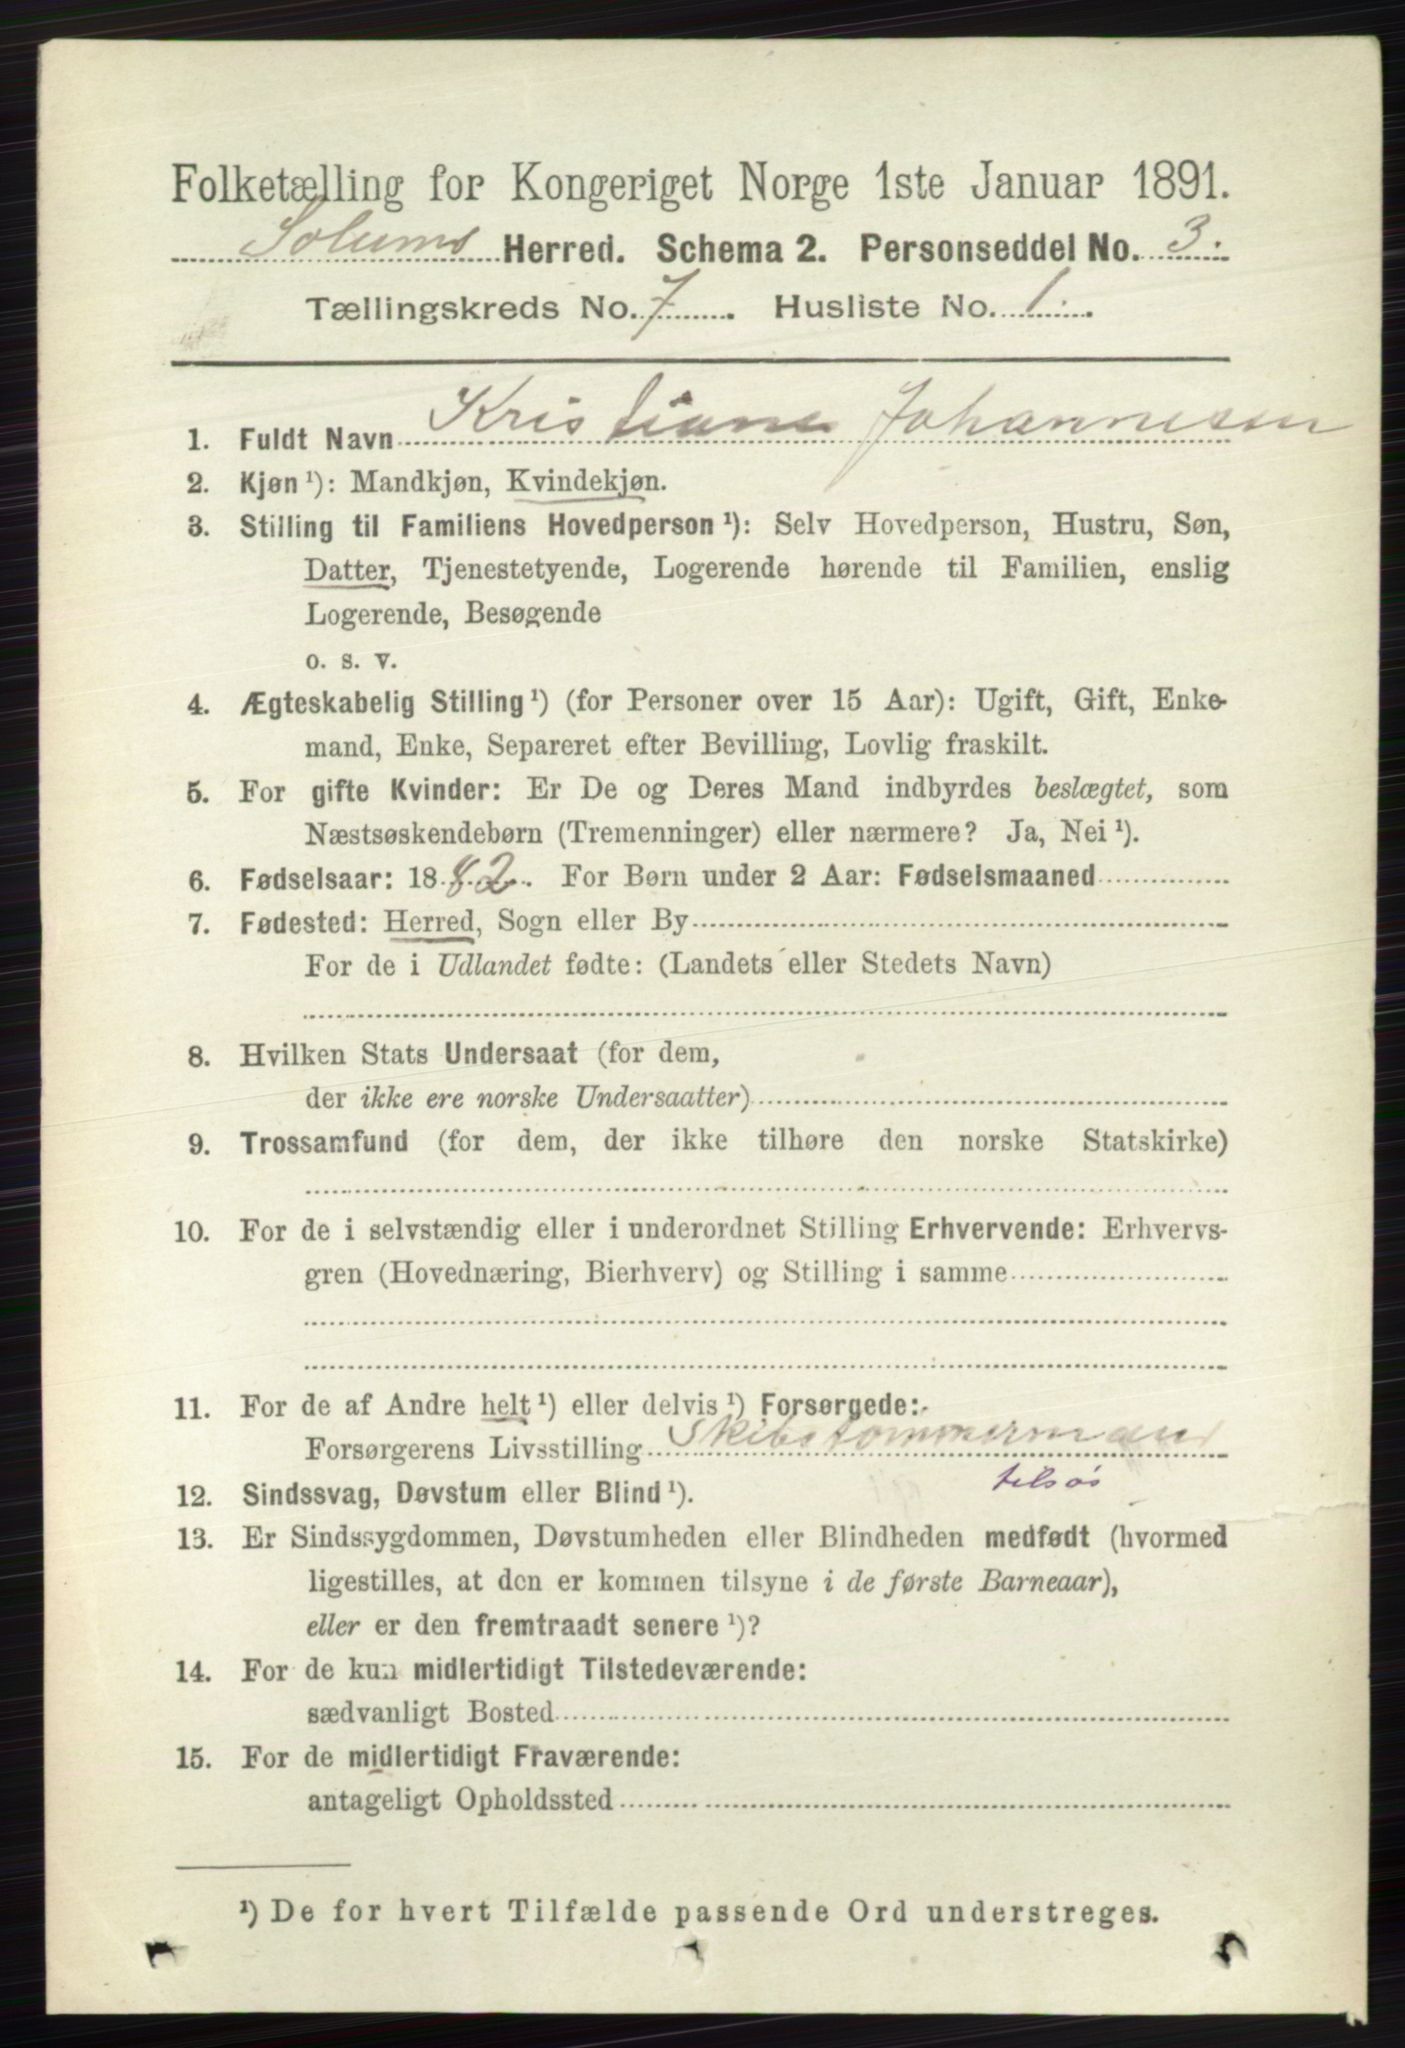 Folketælling for Kongeriget Norge 1ste Januar 1891.
Solums Herred. Schema 2. Personseddel No. 3.
Tællingskreds No. 7. Husliste No. 1.
1. Fuldt Navn Kristiane Johannesen
2. Kjøn ¹): Mandkjøn, Kvindekjøn.
3. Stilling til Familiens Hovedperson ¹): Selv Hovedperson, Hustru, Søn,
Datter, Tjenestetyende, Logerende hørende til Familien, enslig
Logerende, Besøgende
o. s. v.
4. Ægteskabelig Stilling ¹) (for Personer over 15 Aar): Ugift, Gift, Enke-
mand, Enke, Separeret efter Bevilling, Lovlig fraskilt.
5. For gifte Kvinder: Er De og Deres Mand indbyrdes beslægtet, som
Næstsøskendebørn (Tremenninger) eller nærmere? Ja, Nei ¹).
6. Fødselsaar: 1882. For Børn under 2 Aar: Fødselsmaaned
7. Fødested: Herred, Sogn eller By
For de i Udlandet fødte: (Landets eller Stedets Navn)
8. Hvilken Stats Undersaat (for dem,
der ikke ere norske Undersaatter)
9. Trossamfund (for dem, der ikke tilhøre den norske Statskirke)
10. For de i selvstændig eller i underordnet Stilling Erhvervende: Erhvervs-
gren (Hovednæring, Bierhverv) og Stilling i samme
11. For de af Andre helt ¹) eller delvis ¹) Forsørgede:
Forsørgerens Livsstilling Skibstømmermand
tilsøs
12. Sindssvag, Døvstum eller Blind ¹).
13. Er Sindssygdommen, Døvstumheden eller Blindheden medfødt (hvormed
ligestilles, at den er kommen tilsyne i de første Barneaar),
eller er den fremtraadt senere ¹)?
14. For de kun midlertidigt Tilstedeværende:
sædvanligt Bosted
15. For de midlertidigt Fraværende:
antageligt Opholdssted
¹) De for hvert Tilfælde passende Ord understreges.